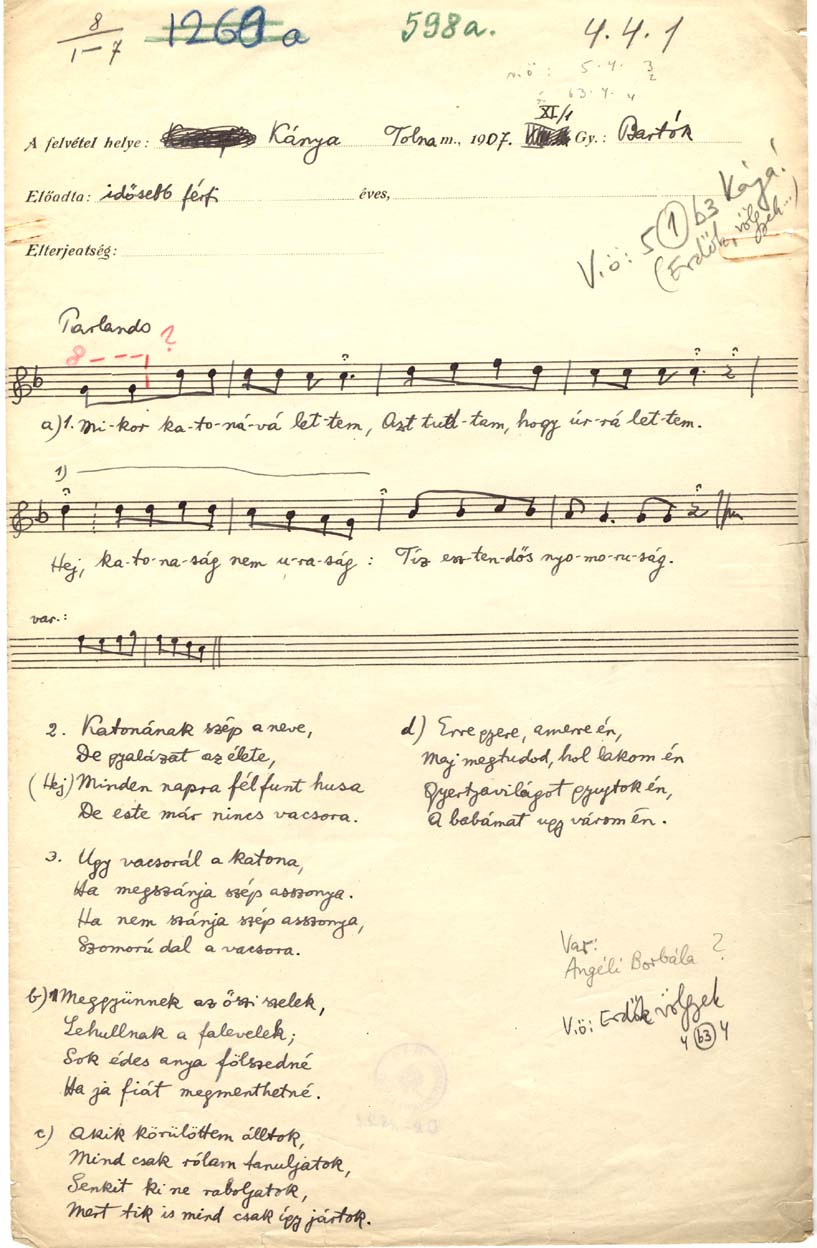 8
1-7
1260 a
598a.
4.4.1
5.4.3
2
63.4.4
XI/1
A felvétel helye: Kánya Tolna m., 1907. Gy.: Bartók
Előadta: idősebb férfi éves,
Elterjedtség:
V.ö: 5 1 b3 Kája!
(Erdők, völgyek...)
Parlando
8 ?
a) 1. Mi-kor ka-to-ná-vá let-tem, Azt tud-tam, hogy úr-rá let-tem.
1)
Hej, ka-to-na-ság nem u-ra-ság: Tíz esz-ten-dős nyo-mo-ru-ság.
var.:
2. Katonának szép a neve,
De gyalázat az élete,
(Hej) Minden napra fél funt husa
De este már nincs vacsora.
3. Ugy vacsorál a katona,
Ha megszánja szép asszonya.
Ha nem szánja szép asszonya,
Szomorú dal a vacsora.
b) 1 Meggyünnek az őszi szelek,
Lehullnak a falevelek;
Sok édes anya fölszedné
Ha ja fiát megmenthetné.
c) Akik körülöttem álltok,
Mind csak rólam tanuljatok,
Senkit ki ne raboljatok,
Mert tik is mind csak így jártok.
d) Erre gyere, amerre én,
Maj megtudod, hol lakom én
Gyertyavilágot gyujtok én,
A babámat ugy várom én.
Var:
Angéli Borbála ?
V.ö: Erdők völgyek
4 b3 4